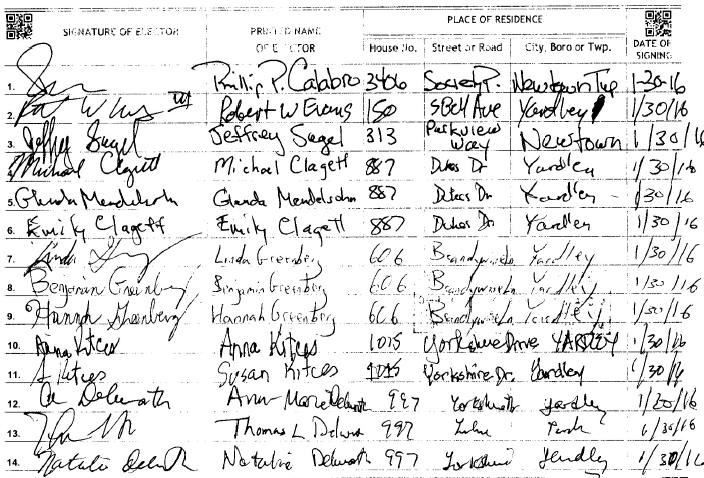 SIGNATURE OF ELECTOR PRINTED NAME OF ELECTOR PLACE OF RESIDENCE House No. Street or Road City, Boro or Twp. DATE OF SIGNING
1. Phillip P. Calabro 3406 Society P. Newtown Twp 1-30-16
2. Robert W Evans 150 Ave Yardley 1/30/16
3. Jeffrey Sugel Jeffrey Sugel 313 Parkview Way Newtown 1/30/16
4. Michael Clagett Michael Clagett 887 Dukes Dr Yardley 1/30/16
5. Glenda Mendelsohn Glenda Mendelsohn 887 Dukes Dr Yardley 1/30/16
6. Emily Clagett Emily Clagett 887 Dukes Dr Yardley 1/30/16
7. Linda Linda Greenberg 606 Yardley 1/30/16
8. Benjamin Greenberg Benjamin Greenberg 606 Yardley 1/30/16
9. Hannah Greenberg Hannah Greenberg 606 Yardley 1/30/16
10. Anna Kitces Anna Kitces 1015 Yorkshire Drive YARDLEY 1/30/16
11. S Kitces Susan Kitces 1015 Yorkshire Dr. Yardley 1/30/16
12. Ann Marie 997 Yardley 1/30/16
13. Thomas L 997 1/30/16
14. Natalie Natalie Delworth 997 Yardley 1/30/16